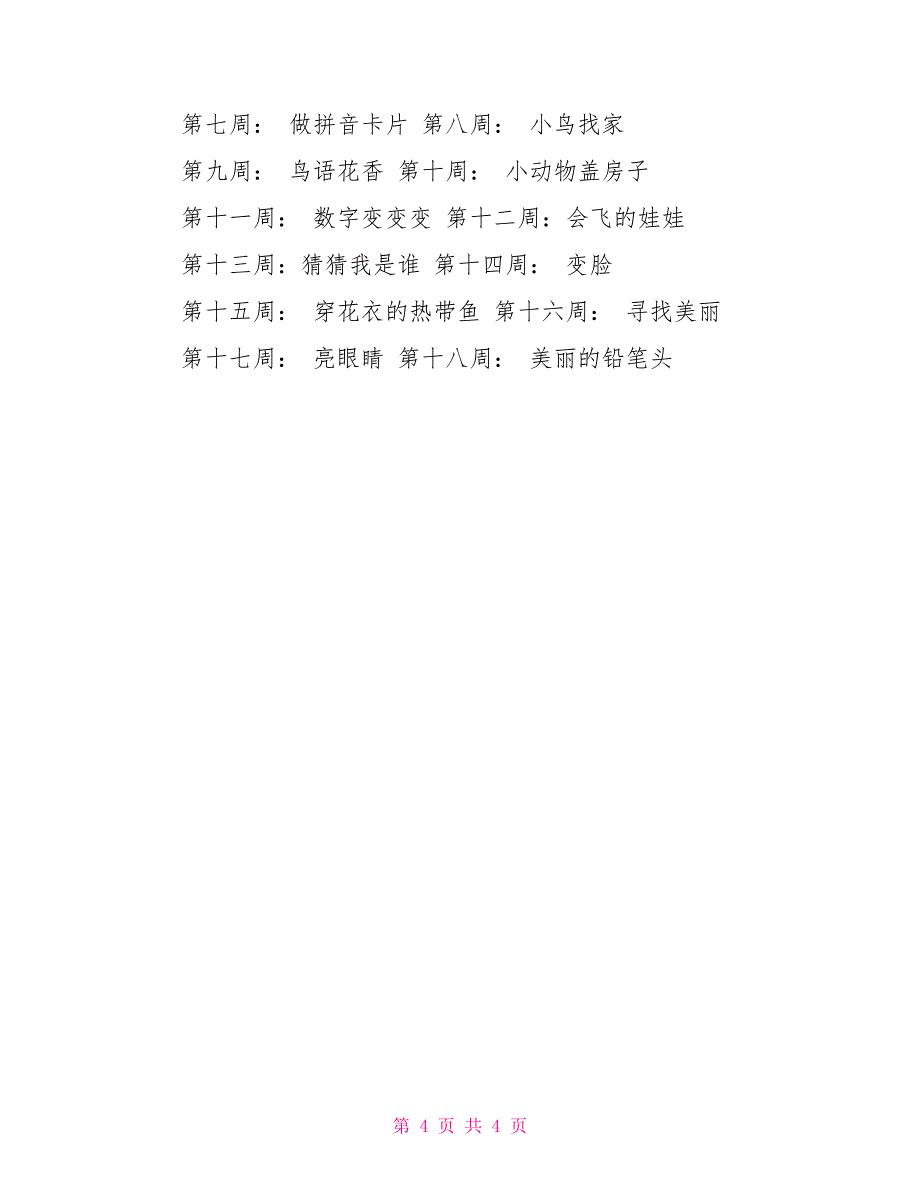 第七周： 做拼音卡片 第八周： 小鸟找家
第九周： 鸟语花香 第十周： 小动物盖房子
第十一周： 数字变变变 第十二周：会飞的娃娃
第十三周：猜猜我是谁 第十四周： 变脸
第十五周： 穿花衣的热带鱼 第十六周： 寻找美丽
第十七周： 亮眼睛 第十八周： 美丽的铅笔头
第 4 页 共 4 页